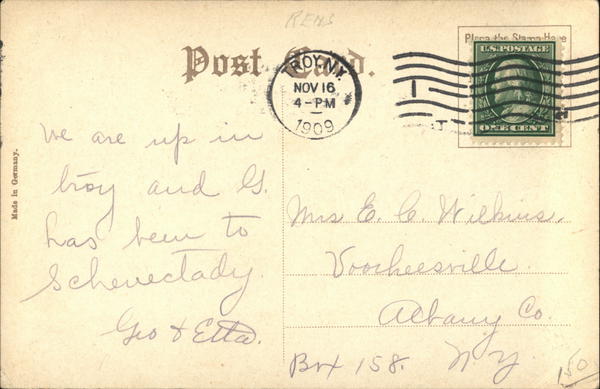 REMS
Post Card.
Place the Stamp Here
U.S. POSTAGE
ONE CENT
TROY, N.Y.
NOV 16
4-PM
1909
Made in Germany.
We are up in
troy and G.
has been to
Schenectady.
Geo & Etta.
Mrs E. C. Wilkins.
Voorheesville
Albany Co.
Box 158. N Y
150